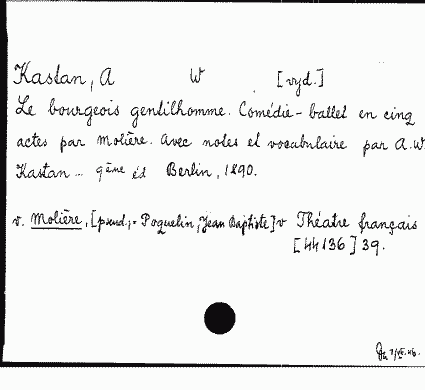 Kastan, A W [vyd.]
Le bourgeois gentilhomme. Comédie-ballet en cinq
actes par Molière. Avec notes et vocabulaire par A.W.
Kastan... 9ème éd Berlin, 1890.
v. Molière, [pseud.,= Poquelin, Jean Baptiste] v Théatre français
[44136] 39.